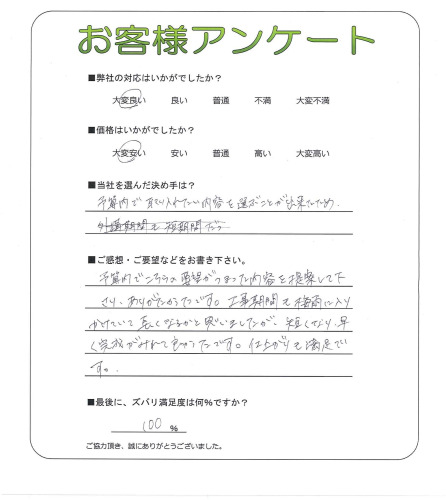 お客様アンケート
■弊社の対応はいかがでしたか？
大変良い　良い　普通　不満　大変不満
■価格はいかがでしたか？
大変安い　安い　普通　高い　大変高い
■当社を選んだ決め手は？
予算内で取り入れたい内容を選ぶことが出来たため。
■ご感想・ご要望などをお書き下さい。
予算内でこちらの要望がつまった内容を提案して下
さり、ありがたかったです。工事期間も梅雨に入り
かけていて長くなるかと思いましたが、短くなり、早
く完成がみれて良かったです。仕上がりも満足で
す。
■最後に、ズバリ満足度は何%ですか？
100 %
ご協力頂き、誠にありがとうございました。